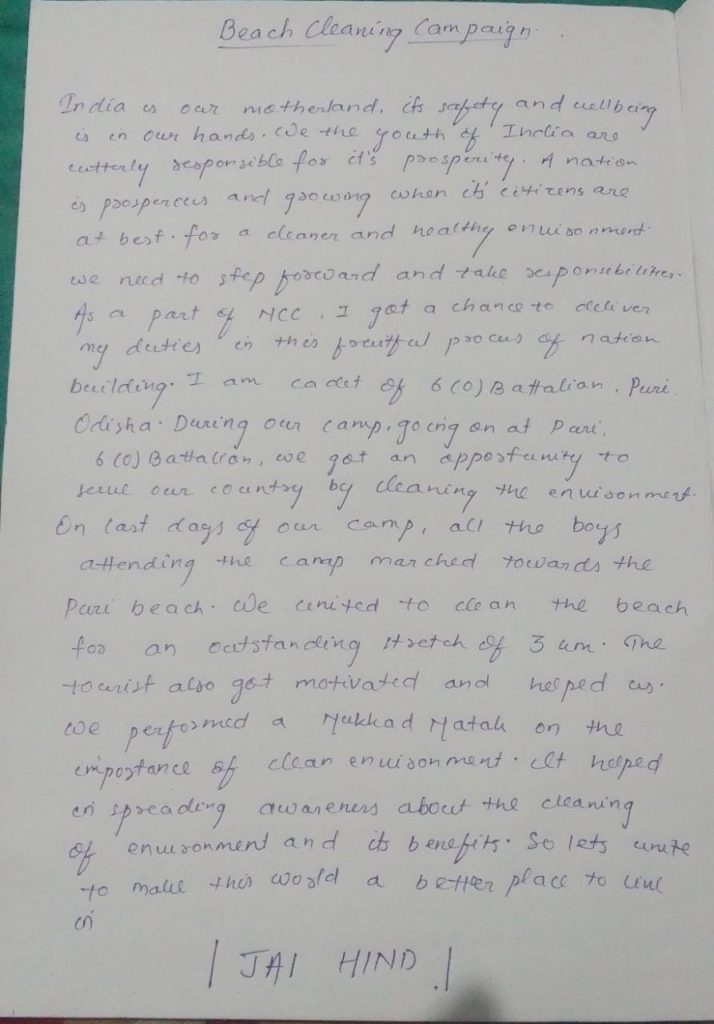 Beach Cleaning Campaign.
India is our motherland, its safety and wellbeing
is in our hands. We the youth of India are
utterly responsible for it's prosperity. A nation
is prosperous and growing when its' citizens are
at best. for a cleaner and healthy environment
we need to step forward and take responsibilities.
As a part of NCC, I got a chance to deliver
my duties in this fruitful process of nation
building. I am cadet of 6(O) Battalian, Puri.
Odisha. During our camp, going on at Puri,
6(O) Battalion, we got an opportunity to
serve our country by cleaning the environment.
On last days of our camp, all the boys
attending the camp marched towards the
Puri beach. We united to clean the beach
for an outstanding stretch of 3 km. The
tourist also got motivated and helped us.
We performed a Nukkad Natak on the
importance of clean environment. It helped
in spreading awareness about the cleaning
of environment and its benefits. So lets unite
to make this world a better place to live
in
| JAI HIND.|